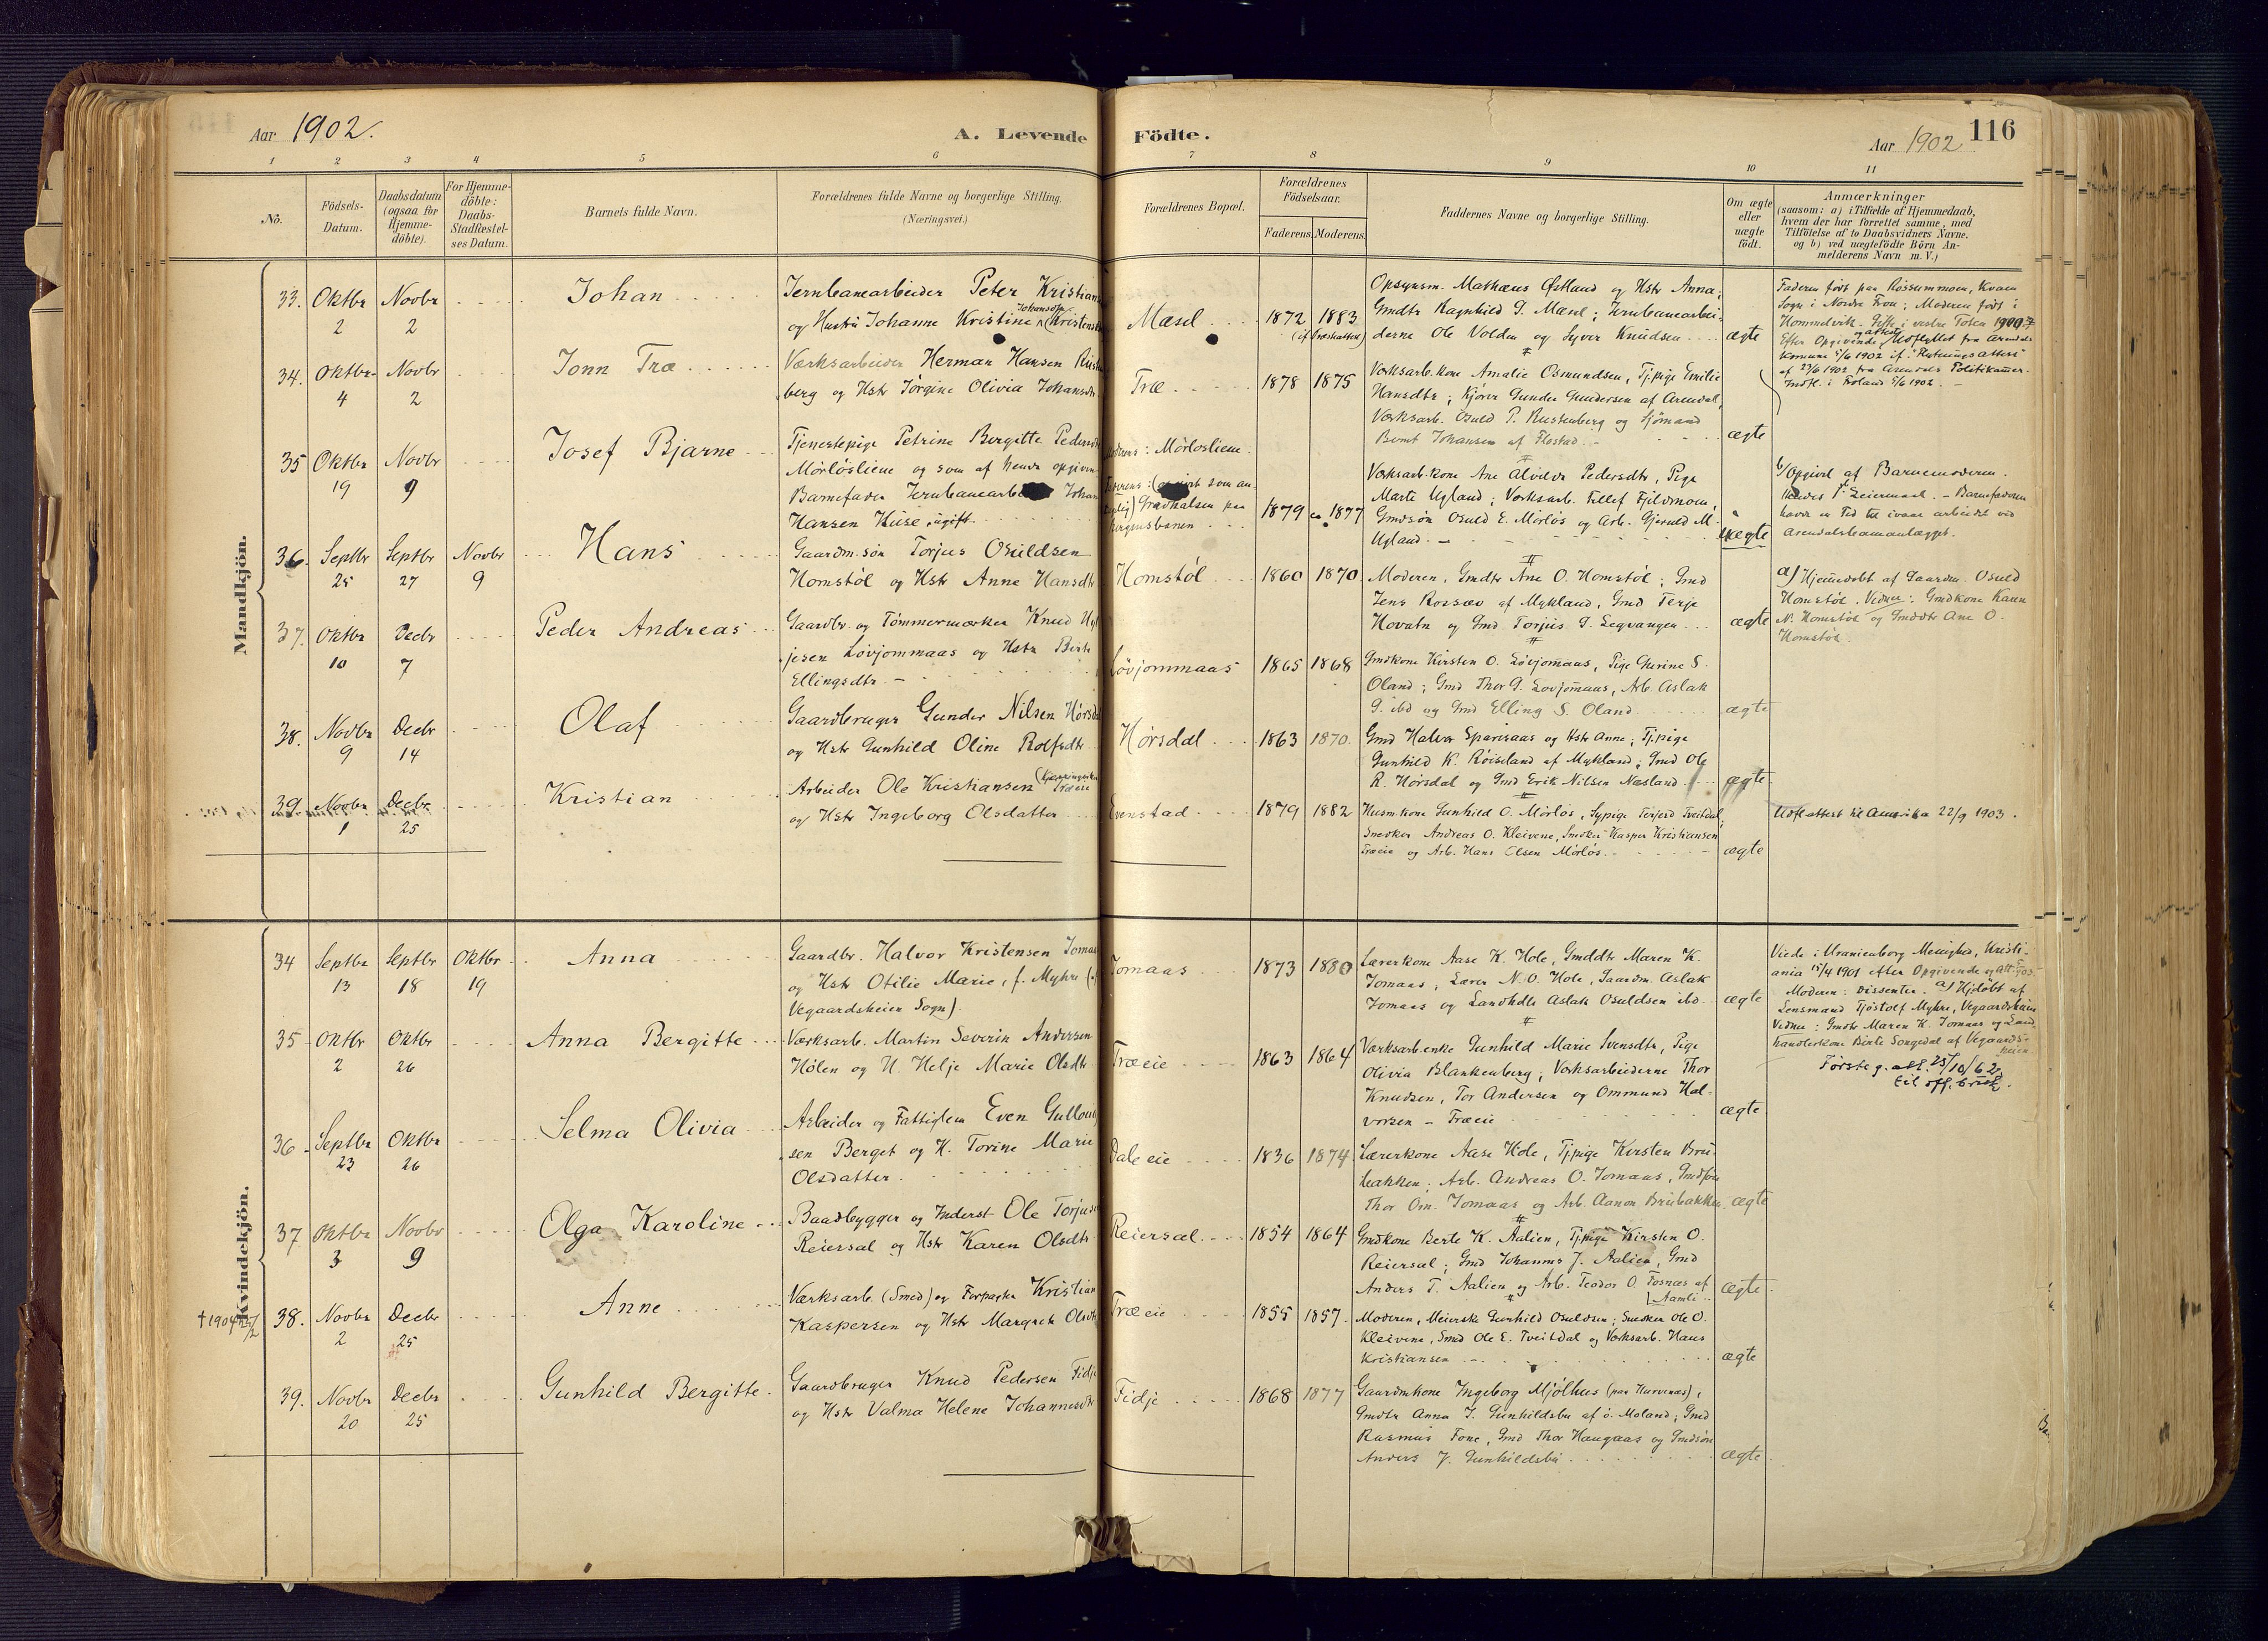 Aar 1902.
A. Levende Födte.
Aar 1902
116
1 2 3 4 5 6 7 8 9 10 11
No.
Födsels-Datum.
Daabsdatum (ogsaa for Hjemme-döbte).
For Hjemme-döbte: Daabs-Stadfæstel-ses Datum.
Barnets fulde Navn.
Forældrenes fulde Navne og borgerlige Stilling.
(Næringsvei.)
Forældrenes Bopæl.
Forældrenes Födselsaar.
Faderens. Moderens.
Faddernes Navne og borgerlige Stilling.
Om ægte eller uægte födt.
Anmærkninger
(saasom: a) i Tilfælde af Hjemmedaab,
hvem der har forrettet samme, med
Tilföielse af to Daabsvidners Navne.
og b) ved uægtefödte Börn An-
melderens Navn m. V.)
Mandkjön.
33. Oktbr 2 Novbr 2 Johan
Jernbanearbeider Peter Kristian
og Hustru Johanne Kristine Johansdtr
Mæsel 1872 1883
Opsynsm. Mathæus Østlund og Hstr Anna;
Gmdtr Ragnhild G. Mæsel; Jernbanearbei-
derne Ole Volden og Syver Knudsen
ægte
Faderen født paa Rossummoen, Kvam
Sogn i Nordre Fron; Moderen født i
Hommelvik. Gifte i vestre Toten
Efter Opgivende. Udflyttet fra Arendals
Kommune 5/6 1902 if. "Flytningsattest"
af 23/6 1902 fra Arendals Politikamer.
Indfl. i Froland 5/6 1902.
34. Oktbr 4 Novbr 2 Jonn Træ
Værksarbeider Herman Hansen Rust
berg og Hstr Jørgine Olivia Johansdtr
Træ 1878 1875
Værksarb.kone Amalie Osmundsen, Tj.pige Emilie
Hansdtr; Kjører Gunder Gundersen af Arendal,
Værksarb. Osuld P. Rustenberg og Sjømand
Bernt Johansen af Flostad.
ægte
35 Oktbr 19 Novbr 9 Josef Bjarne
Tjenestepige Petrine Bergitte Pedersdtr
Mörlösliene og som af hende opgiven
Barnefader Jernbanearbeider Johan
Hansen Huse, ugift
Moderens: Mörlosliene.
Faderens: (opgivet som an-
Gravhalsen paa
Bergensbanen
1879 ca. 1877
Værksarb.kone Ane Alvilde Pedersdtr, Pige
Marte Ugland; Værksarb. Tellef Fjeldmoen,
Gmdsøn Osuld E. Mörlös og Arb. Gjeruld M.
Ugland.
uægte
b/ Opgivet af Barnemoderen.
Hendes 1ste Leiermaal. - Barnefaderen
havde en Tid til ivaar arbeidet ved
Arendalsbaneanlægget.
36. Septbr 25 Septbr 27 Novbr 9 Hans
Gaardm.søn Torjus Osuldsen
Homstöl og Hstr Anne Hansdtr
Homstöl 1860 1870
Moderen, Gmdtr Ane O. Homstöl; Gmd
Jens Rossæv af Mykland, Gmd Terje
Hovatn og Gmd Torjus G. Legvangen
ægte
a) Hjemmedøbt af Gaardm. Osuld
Homstöl. Vidner: Gmdkone Karen
N. Homstöl og Gmddtr Ane O.
Homstöl.
37. Oktbr 10 Decbr 7 Peder Andreas
Gaardbr. og Tömmermærker Knud
jesen Lövjommaas og Hstr Berte
Ellingsdtr.
Lövjommaas 1865 1868
Gmdkone Kirsten O. Lövjomaas, Pige Gurine S.
Oland; Gmd Thor G. Lovjomaas, Arb. Aslak
G. ibd og Gmd Elling S. Oland
ægte
38. Novbr 9 Decbr 14 Olaf
Gaardbruger Gunder Nilsen Hörsdal
og Hstr Gunhild Oline Rolfsdtr
Hörsdal 1863 1870.
Gmd Halvor Sparsaas og Hstr Anne; Tj.pige
Gunhild K. Röiseland af Mykland; Gmd Ole
R. Hörsdal og Gmd Erik Nilsen Næsland
ægte
39. Novbr 1 Decbr 25 Kristian
Arbeider Ole Kristiansen Træeie
og Hstr Ingeborg Olsdatter
Evenstad 1879 1882
Husm.kone Gunhild O. Mörlös, Sypige Terjerd Tveitdal;
Snedker Andreas O. Kleivene, Smeden Kasper Kristiansen
Træeie og Arb. Hans Olsen Mörlös.
ægte
Udfl.attest til Amerika 22/9 1903.
Kvindekjön.
34 Septbr 13 Septbr 18 Oktbr 19 Anna
Gaardbr. Halvor Kristensen Jomaas
og Hstr Otilie Marie, f. Myhre
Vegaardsheien Sogn).
Jomaas 1873 1880
Lærerkone Aase K. Hole, Gmddtr Maren K.
Jomaas; Lærer N. O. Hole, Gaardm. Aslak
Jomaas og Landhdlr Aslak Osuldsen ibd.
ægte
Viede i Uranienborg Menighed, Kristi-
ania 15/4 1901 efter Opgivende og Att.
Moderen: Dissenter. a) Hjdøbt af
Lensmand Tjöstolf Myhre, Vegaardsheien
Vidner: Gmdtr Maren K. Jomaas og Land-
handlerkone Birte Songedal af Vegaards-
heien
Förste g. att. 25/10/62,
til off. bruk.
35 Oktbr 2 Oktbr 26 Anna Bergitte
Værksarb. Martin Severin Andersen
Hölen og H. Helje Marie Olsdtr
Træeie 1863 1864
Værksarb.enke Gunhild Marie Svensdtr, Pige
Olivia Blankenberg; Værksarbeiderne Thor
Knudsen, Tor Andersen og Ommund Hal-
vorsen - Træeie
ægte
36 Septbr 23 Oktbr 26 Selma Olivia
Arbeider og Fattiglem Even Gullow
sen Berget og H. Torine Marie
Olsdatter.
Dale eie 1836 1874
Lærerkone Aase Hole, Tj.pige Kirsten Bru-
bakken; Arb. Andreas O. Jomaas, Gmdsøn
Thor Om. Jomaas og Arb. Aanon Brubakken
ægte
37 Oktbr 3 Novbr 9 Olga Karoline
Baadbygger og Inderst Ole Torjusen
Reiersæl og Hstr Karen Olsdtr
Reiersæl 1854 1864
Gmdkone Berte K. Aalien, Tj.pige Kirsten O.
Reiersæl; Gmd Johannes J. Aalien, Gmd
Anders T. Aalien og Arb. Teodor O. Fosnæs af
Aamli
ægte
† 1904
38. Novbr 2 Decbr 25 Anne
Værksarb. (Smed) og Forpagter Kristian
Kaspersen og Hstr Margrete Olsdtr
Træeie 1855 1857.
Moderen, Meierske Gunhild Osuldsen; Snedker Ole O.
Kleivene, Smd Ole E. Tveitdal og Værksarb. Hans
Kristiansen
ægte
39. Novbr 20 Decbr 25 Gunhild Bergitte
Gaardbruger Knud Pedersen Fidje
og Hstr Valma Helene Johannesdtr
Fidje 1868 1877
Gaardmkone Ingeborg Mjölhus (paa Hurvenæs),
Gmdtr Anna J. Gunhildsbu af ö. Moland; Gmd
Rasmus Fone, Gmd Thor Haugaas og Gmdsøn
Anders J. Gunhildsbu
ægte